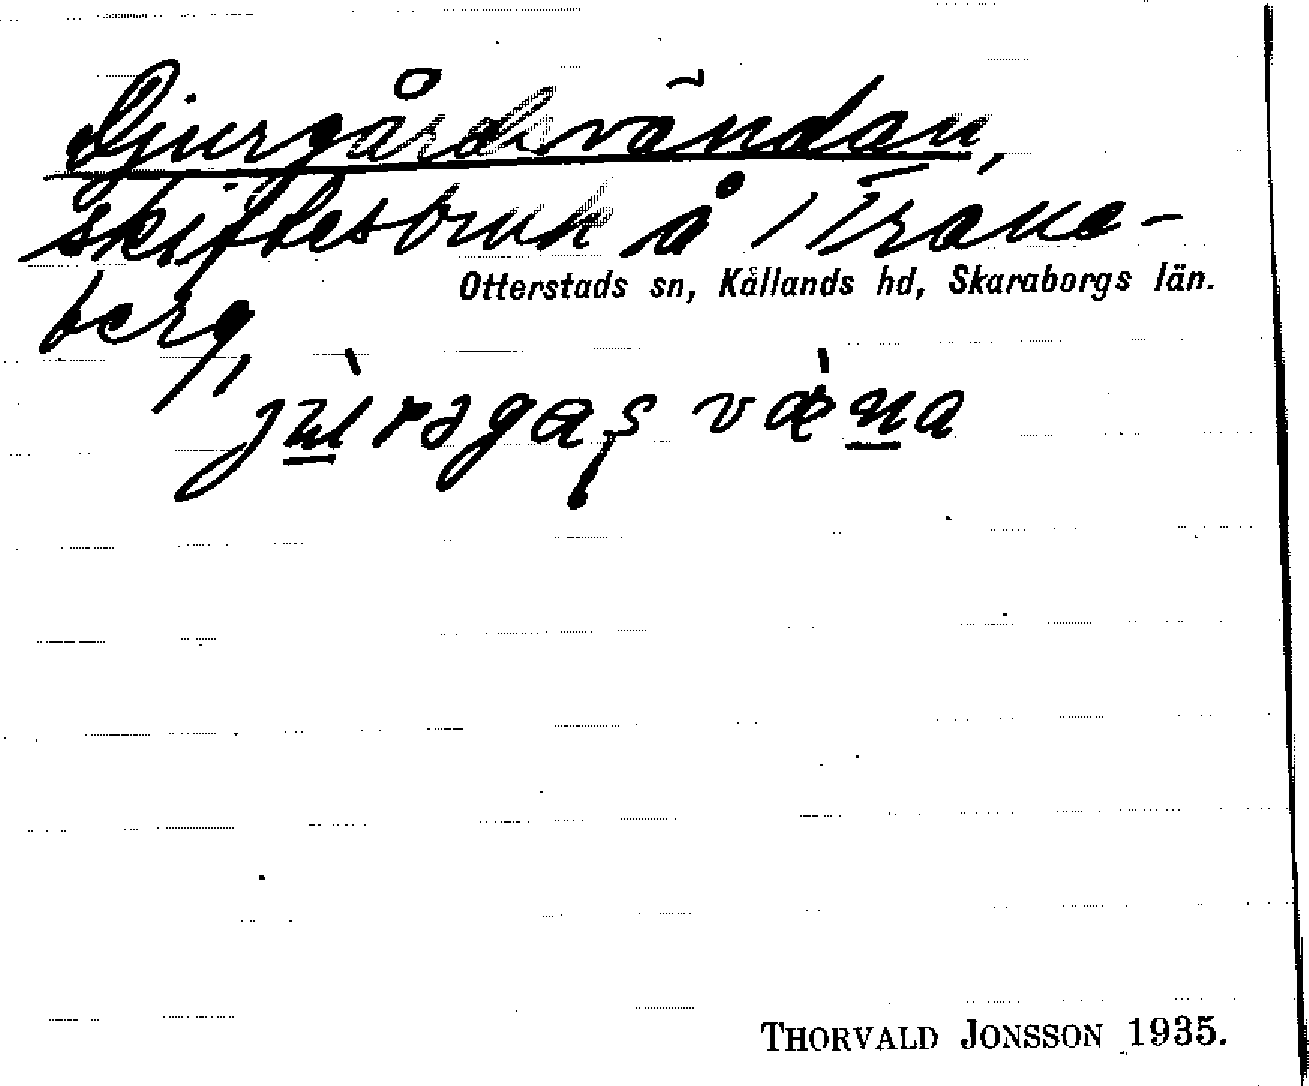 Djurgårdsvändan,
skiftesbruk å Trane-
Otterstads sn, Kållands hd, Skaraborgs län.
berg,
THORVALD JONSSON 1935.